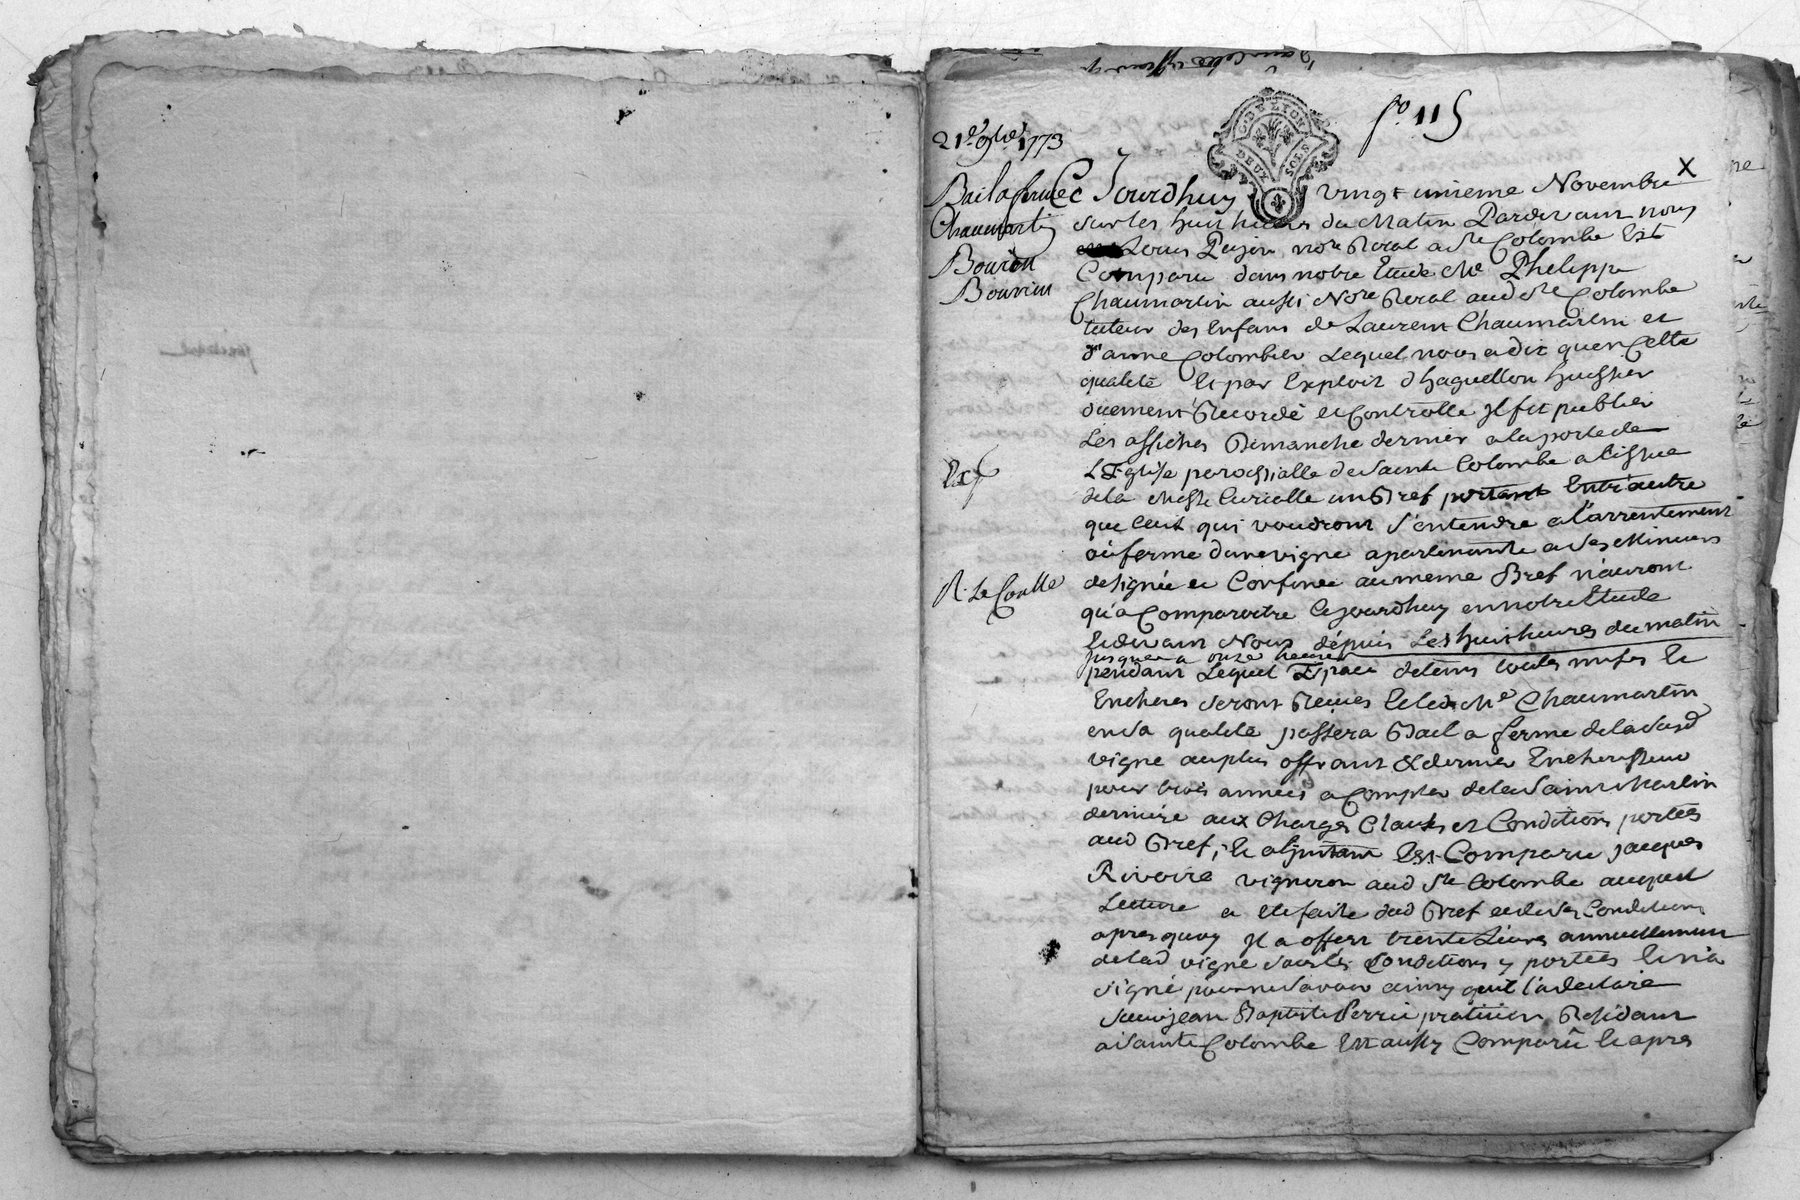 fo. 115
G. DE LYON
DEUX SOLS
21e 9bre 1773
Bail a ferme
Chaumartin
Bouron
Bouvier
Ex
R. Le Conlle
Ce Jourdhuy vingt unieme Novembre X
sur les huit heures du Matin Pardevant nous
Louis Pujin nore Roial a Ste Colombe Est
Comparu dans notre Etude Me Phelippe
Chaumartin aussi Nore Roial aud Ste Colombe
tuteur des Enfans de Laurent Chaumartin et
d'anne Colombier Lequel nous a dit qu'en Cette
qualité Et par Exploit d'haguellon huissier
duement Recordé et Controllé Jl fit publier
Les affiches Dimanche dernier a la porte de
L'Eglise paroissialle de Sainte Colombe a l'issue
de la Messe Curialle un Bref portant Entr'autre
que Ceux qui voudront s'entendre a l'arrentement
ou ferme d'une vigne apartenante a ses Mineurs
designée et Confinée au meme Bref n'auront
qu'a Comparoitre Cejourdhuy en notre Etude
Pardevant Nous depuis Les huit heures du matin
jusques a onze heures
pendant Lequel Espace de tems toutes mises Et
Encheres seront Reçües Et led. Me Chaumartin
en Sa qualité passera Bail a ferme de la Susd
vigne au plus offrant & dernier Encherisseur
pour trois années a Compter de la Saint Martin
derniere aux Charges Clauses et Conditions portées
aud Bref, Et a l'instant Est Comparu jacques
Rivoire vigneron aud Ste Colombe auquel
Lecture a Eté faite dud Bref et de ses Conditions
apres quoy Jl a offert trente Livres annuellement
de lad vigne sous les Conditions y portées Et n'a
signé pour ne savoir ainsy qu'il l'a declaré
Sieur jean Baptiste Perrin praticien Residant
a Sainte Colombe Est aussy Comparû Et apres